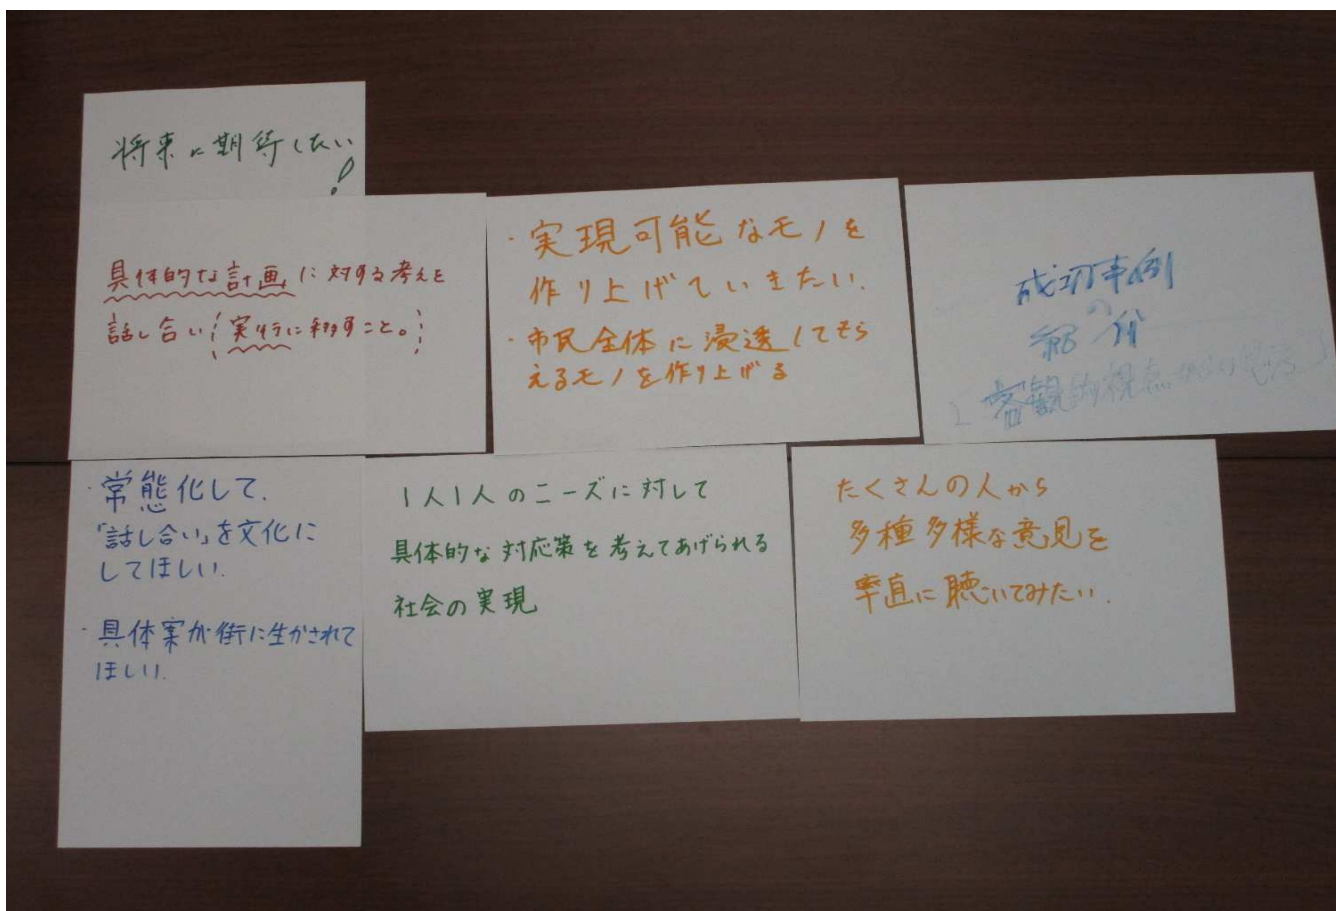 将来に期待したい!
具体的な計画に対する考えを
話し合い実行に移すこと。
・実現可能なモノを
作り上げていきたい.
・市民全体に浸透してもら
えるモノを作り上げる
成功事例
の
紹介
客観的視点からの
・常態化して.
「話し合い」を文化に
してほしい.
・具体案が街に生かされて
ほしい.
1人1人のニーズに対して
具体的な対応策を考えてあげられる
社会の実現
たくさんの人から
多種多様な意見を
率直に聴いてみたい.